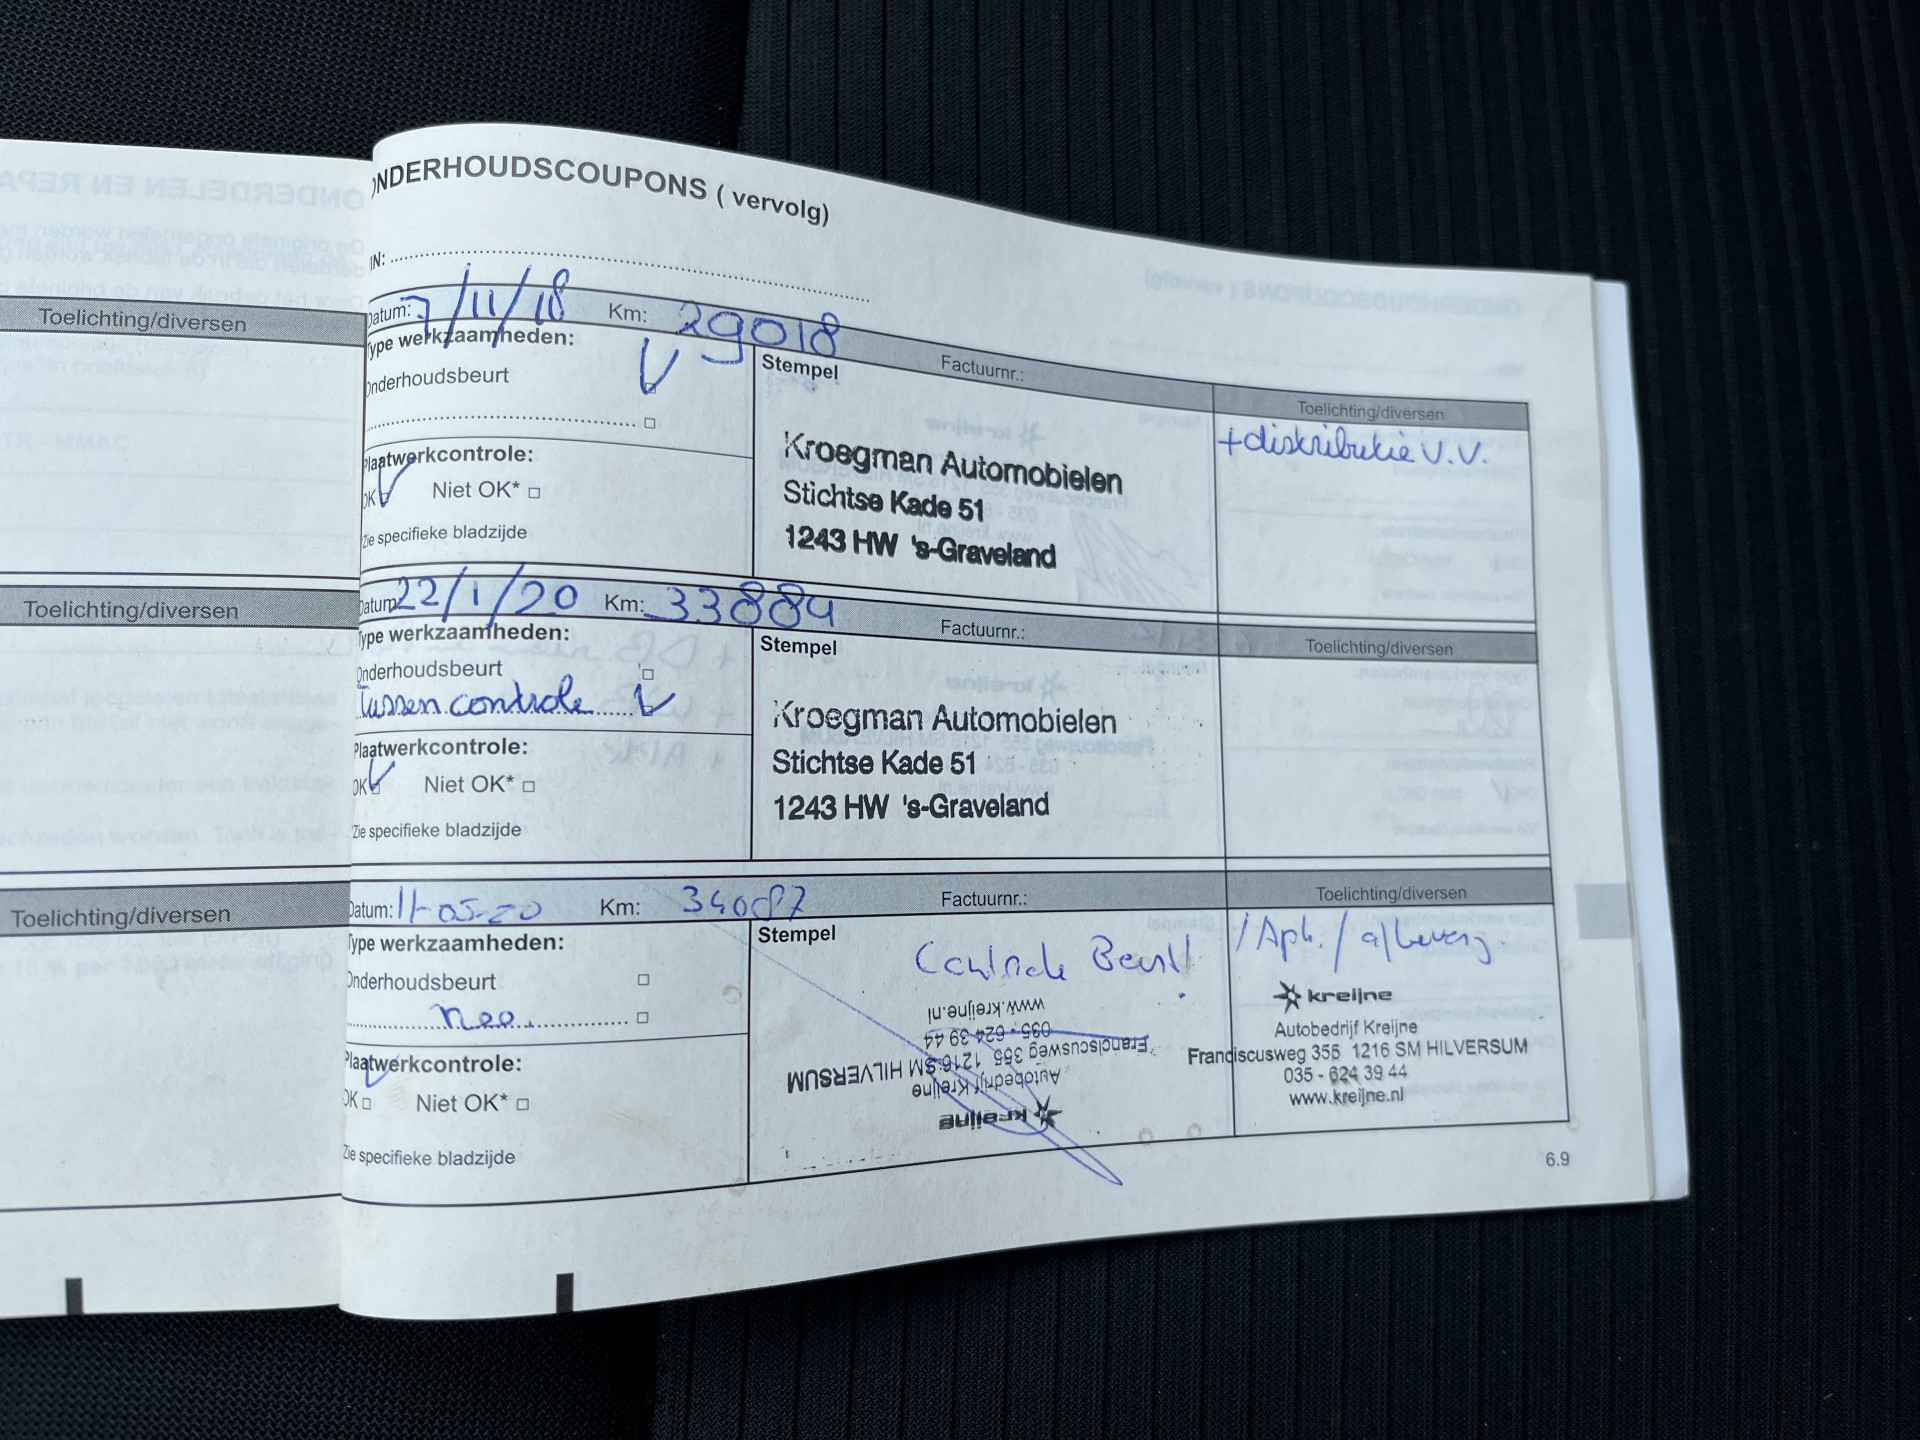 Toelichting/diversen
Toelichting/diversen
Toelichting/diversen
ONDERHOUDSCOUPONS ( vervolg)
IN:
Datum: 7/11/18 Km: 29018
Factuurnr.:
Type werkzaamheden:
Onderhoudsbeurt
Plaatwerkcontrole:
OK Niet OK*
Zie specifieke bladzijde
Stempel
Kroegman Automobielen
Stichtse Kade 51
1243 HW 's-Graveland
Toelichting/diversen
+distributie V.V.
Datum 22/1/20 Km: 33884
Factuurnr.:
Type werkzaamheden:
Onderhoudsbeurt
tussen controle
Plaatwerkcontrole:
OK Niet OK*
Zie specifieke bladzijde
Stempel
Kroegman Automobielen
Stichtse Kade 51
1243 HW 's-Graveland
Toelichting/diversen
Datum: 11-05-20 Km: 34087
Factuurnr.:
Type werkzaamheden:
Onderhoudsbeurt
nee.
Plaatwerkcontrole:
OK Niet OK*
Zie specifieke bladzijde
Stempel
Controle Beurt!
kreijne
Autobedrijf Kreijne
Franciscusweg 355 1216 SM HILVERSUM
035 - 624 39 44
www.kreijne.nl
Toelichting/diversen
/Apk. /
kreijne
Autobedrijf Kreijne
Franciscusweg 355 1216 SM HILVERSUM
035 - 624 39 44
www.kreijne.nl
6.9